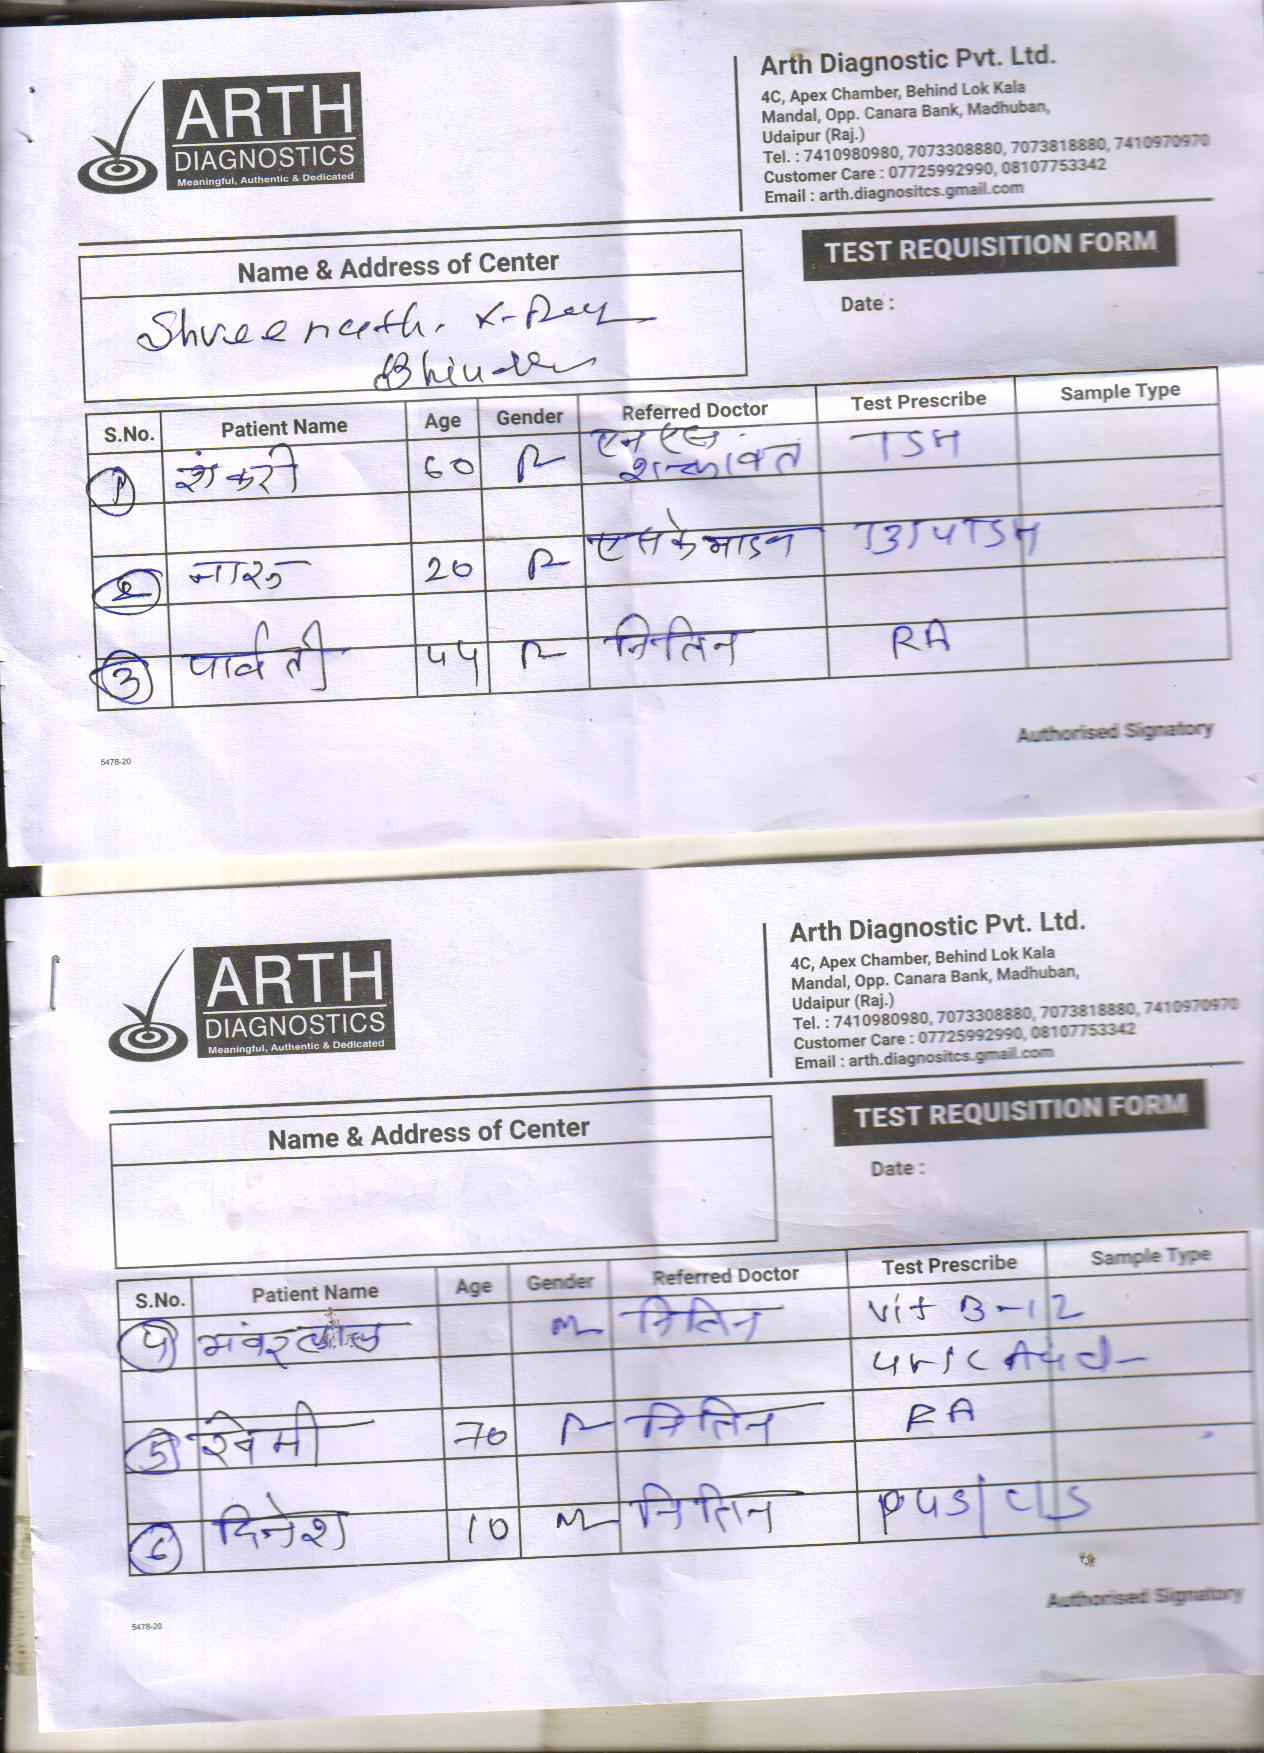 ARTH
DIAGNOSTICS
Meaningful, Authentic & Dedicated
Arth Diagnostic Pvt. Ltd.
4C, Apex Chamber, Behind Lok Kala
Mandal, Opp. Canara Bank, Madhuban,
Udaipur (Raj.)
Tel. : 7410980980, 7073308880, 7073818880, 7410970970
Customer Care : 07725992990, 08107753342
Email : arth.diagnositcs.gmail.com
Name & Address of Center
TEST REQUISITION FORM
Shreenath. X-Ray
Bhinder
Date :
S.No. Patient Name Age Gender Referred Doctor Test Prescribe Sample Type
1 शंकरी 60 F एन एस TSH
2 नारू 20 F एस के T3T4TSH
3 पार्वती 45 F नितिन RA
Authorised Signatory
5478-20
ARTH
DIAGNOSTICS
Meaningful, Authentic & Dedicated
Arth Diagnostic Pvt. Ltd.
4C, Apex Chamber, Behind Lok Kala
Mandal, Opp. Canara Bank, Madhuban,
Udaipur (Raj.)
Tel. : 7410980980, 7073308880, 7073818880, 7410970970
Customer Care : 07725992990, 08107753342
Email : arth.diagnositcs.gmail.com
Name & Address of Center
TEST REQUISITION FORM
Date :
S.No. Patient Name Age Gender Referred Doctor Test Prescribe Sample Type
4 भंवरलाल M नितिन Vit B-12
uric Acid
5 खेमी 70 F नितिन RA
6 दिनेश 10 M नितिन PUS/C/S
Authorised Signatory
5478-20